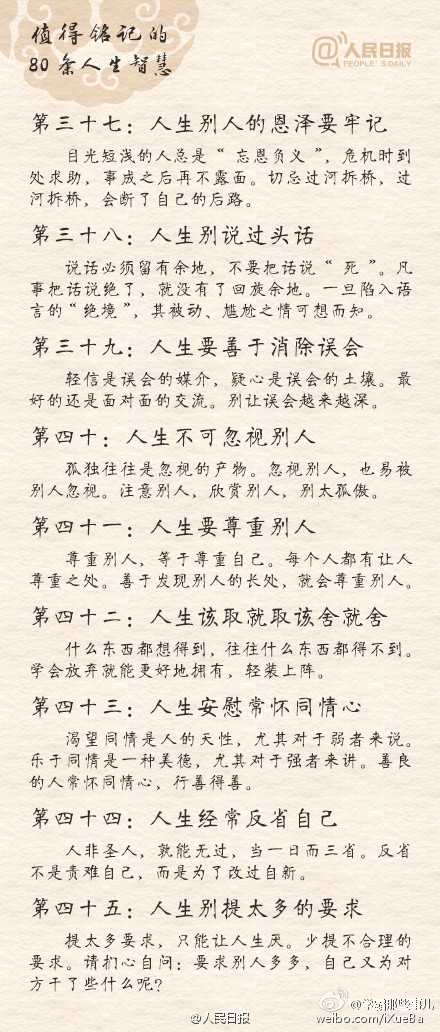 值得铭记的
80条人生智慧
@人民日报
PEOPLE'S DAILY
第三十七：人生别人的恩泽要牢记
目光短浅的人总是“忘恩负义”，危机时到
处求助，事成之后再不露面。切忌过河拆桥，过
河拆桥，会断了自己的后路。
第三十八：人生别说过头话
说话必须留有余地，不要把话说“死”。凡
事把话说绝了，就没有了回旋余地。一旦陷入语
言的“绝境”，其被动、尴尬之情可想而知。
第三十九：人生要善于消除误会
轻信是误会的媒介，疑心是误会的土壤。最
好的还是面对面的交流。别让误会越来越深。
第四十：人生不可忽视别人
孤独往往是忽视的产物。忽视别人，也易被
别人忽视。注意别人，欣赏别人，别太孤傲。
第四十一：人生要尊重别人
尊重别人，等于尊重自己。每个人都有让人
尊重之处。善于发现别人的长处，就会尊重别人。
第四十二：人生该取就取该舍就舍
什么东西都想得到，往往什么东西都得不到。
学会放弃就能更好地拥有，轻装上阵。
第四十三：人生安慰常怀同情心
渴望同情是人的天性，尤其对于弱者来说。
乐于同情是一种美德，尤其对于强者来讲。善良
的人常怀同情心，行善得善。
第四十四：人生经常反省自己
人非圣人，孰能无过，当一日而三省。反省
不是责难自己，而是为了改过自新。
第四十五：人生别提太多的要求
提太多要求，只能让人生厌。少提不合理的
要求。请扪心自问：要求别人多多，自己又为对
方干了些什么呢？
@人民日报
@学霸那些事儿
weibo.com/iXueBa